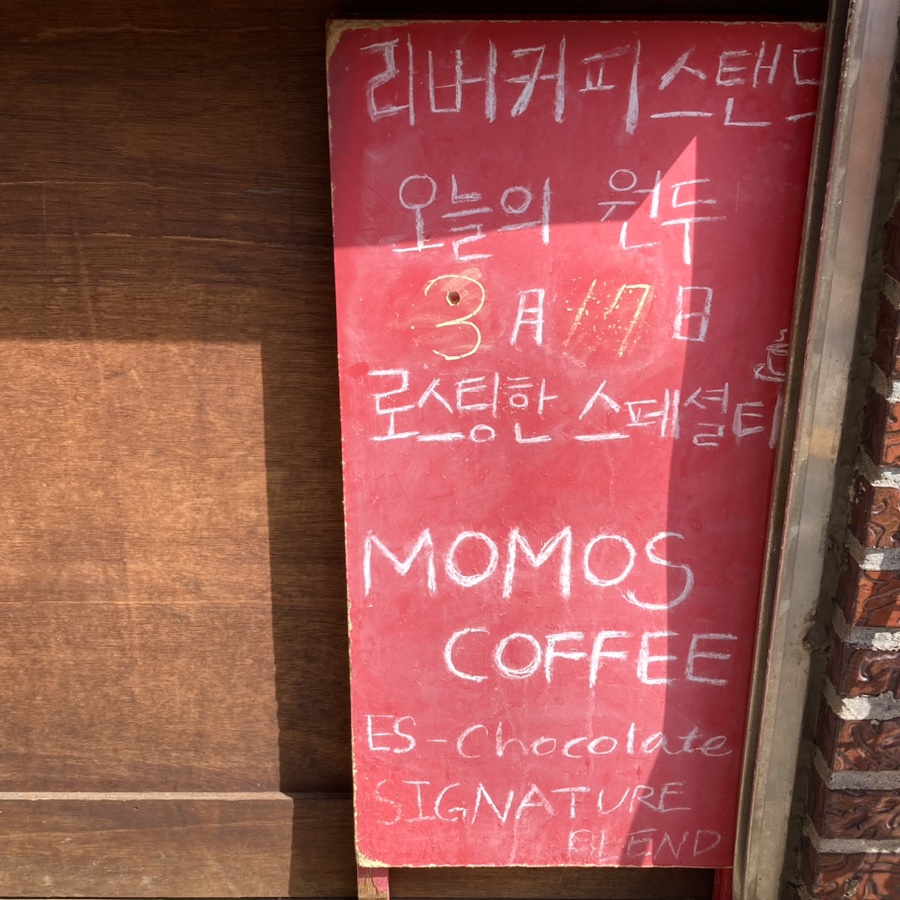 리버커피스탠드
오늘의 원두
3月 17日
로스팅한 스페셜티
MOMOS
COFFEE
ES-Chocolate
SIGNATURE
BLEND